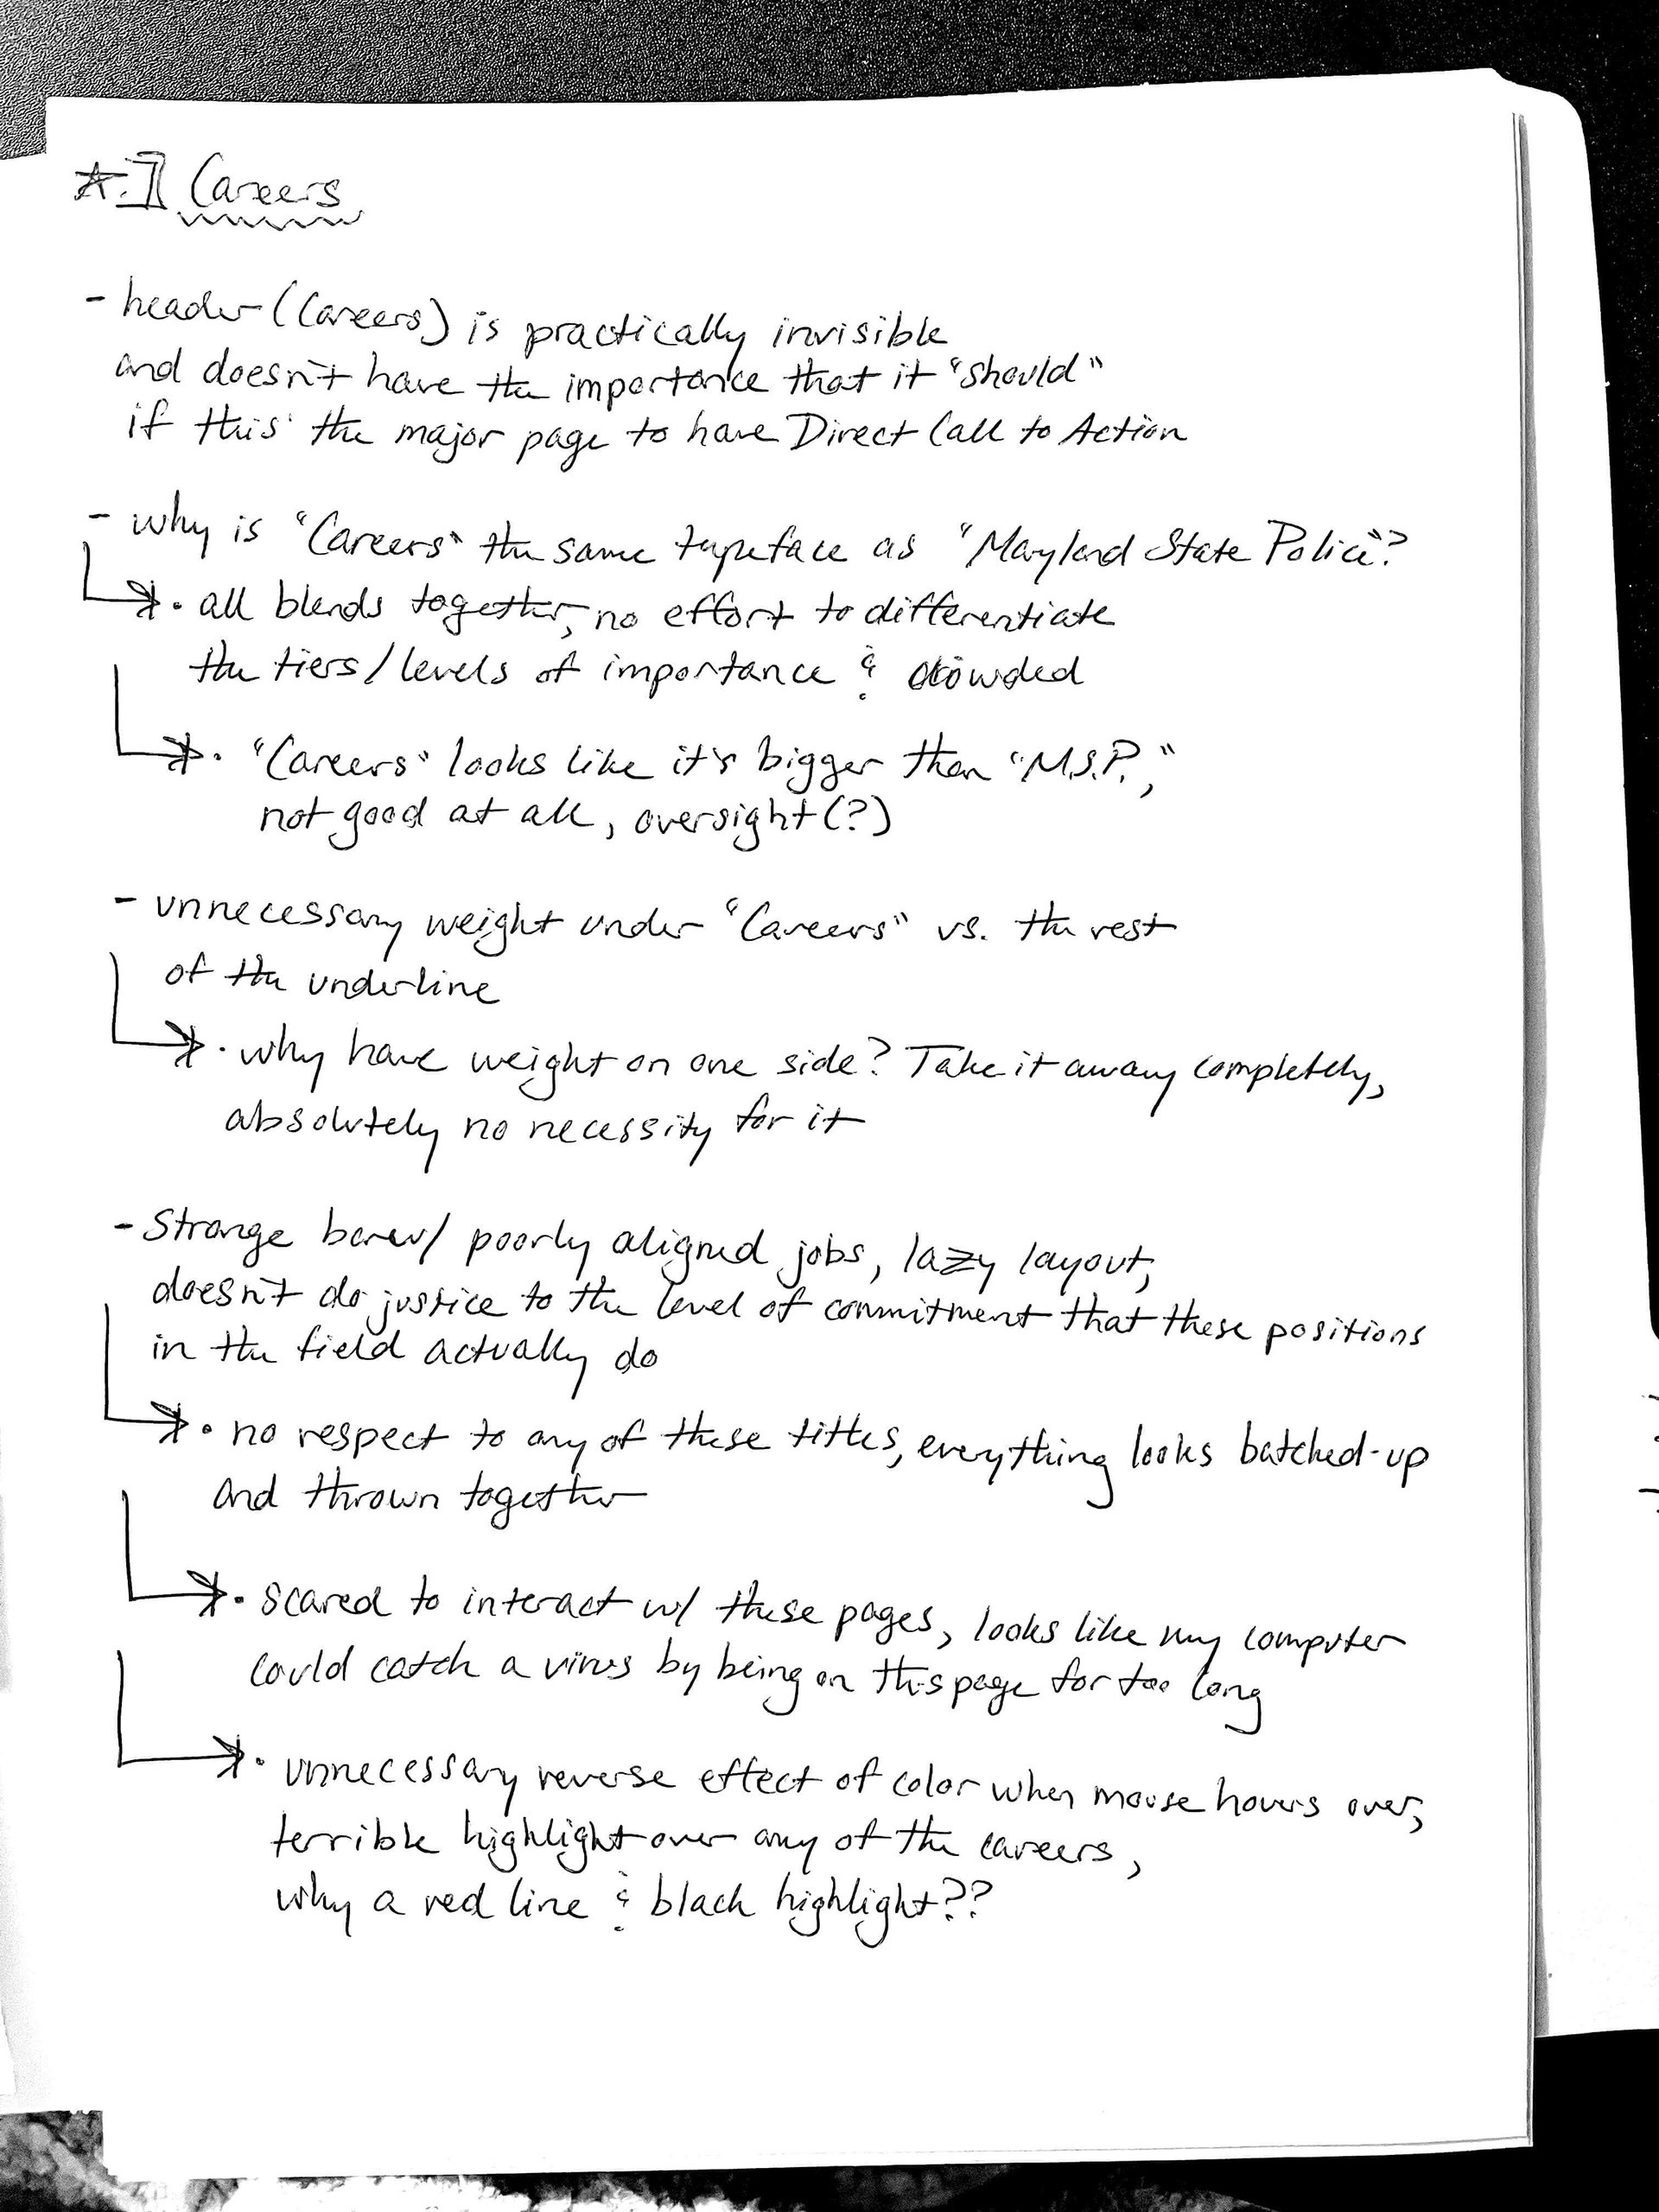 ☆.] Careers
- header (Careers) is practically invisible
and doesn't have the importance that it "should"
if this the major page to have Direct Call to Action
- why is "Careers" the same typeface as "Maryland State Police"?
→ • all blends together, no effort to differentiate
the tiers/levels of importance & crowded
→ • "Careers" looks like it's bigger than "M.S.P.,"
not good at all, oversight(?)
- unnecessary weight under "Careers" vs. the rest
of the underline
→ • why have weight on one side? Take it away completely,
absolutely no necessity for it
- Strange poorly aligned jobs, lazy layout,
doesn't do justice to the level of commitment that these positions
in the field actually do
→ • no respect to any of these titles, everything looks batched-up
and thrown together
→ • scared to interact w/ these pages, looks like my computer
could catch a virus by being on this page for too long
→ • unnecessary reverse effect of color when mouse hovers over,
terrible highlight over any of the careers,
why a red line & black highlight??